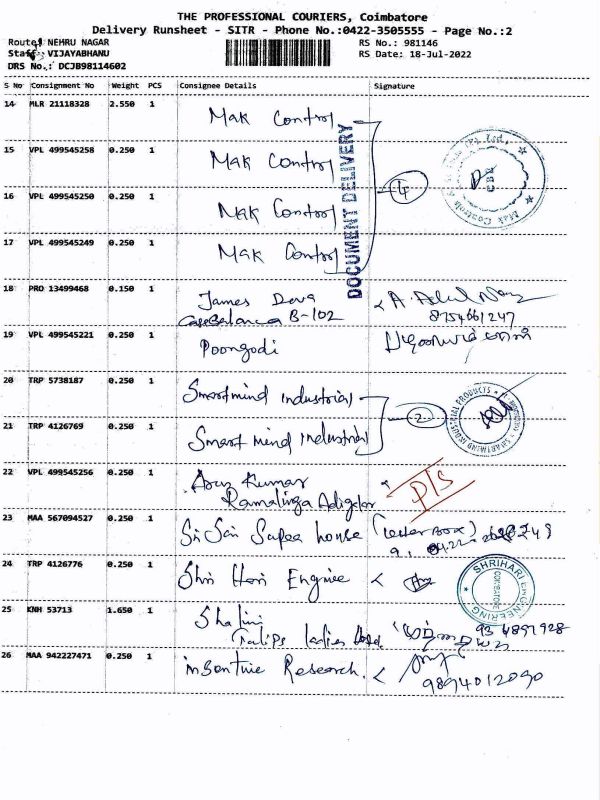 THE PROFESSIONAL COURIERS, Coimbatore
Delivery Runsheet - SITR - Phone No.:0422-3505555 - Page No.:2
Route: NEHRU NAGAR
RS No.: 981146
Staff: VIJAYABHANU
RS Date: 18-Jul-2022
DRS No.: DCJB98114602
S No Consignment No Weight PCS Consignee Details Signature
14 MLR 21118328 2.550 1 Mak Control
15 VPL 499545258 0.250 1 Mak Control
16 VPL 499545250 0.250 1 Mak Control
17 VPL 499545249 0.250 1 Mak Control
DOCUMENT DELIVERY
4
18 PRO 13499468 0.150 1 James Deva
Casablanca B-102
8754661247
19 VPL 499545221 0.250 1 Poongodi
20 TRP 5738187 0.250 1 Smartmind industrial
21 TRP 4126769 0.250 1 Smart mind Industrial
2
22 VPL 499545256 0.250 1 Arun Kumar
Ramalinga Adigalar
P/S
23 MAA 567094527 0.250 1 Sri Sai Supea house (Letter Box)
24 TRP 4126776 0.250 1 Shri Hari Enginee
SHRIHARI ENGINEERING
COIMBATORE
25 KNH 53713 1.650 1 Shalini
Tulips ladies
93 4891928
26 MAA 942227471 0.250 1 Research.
9894012090